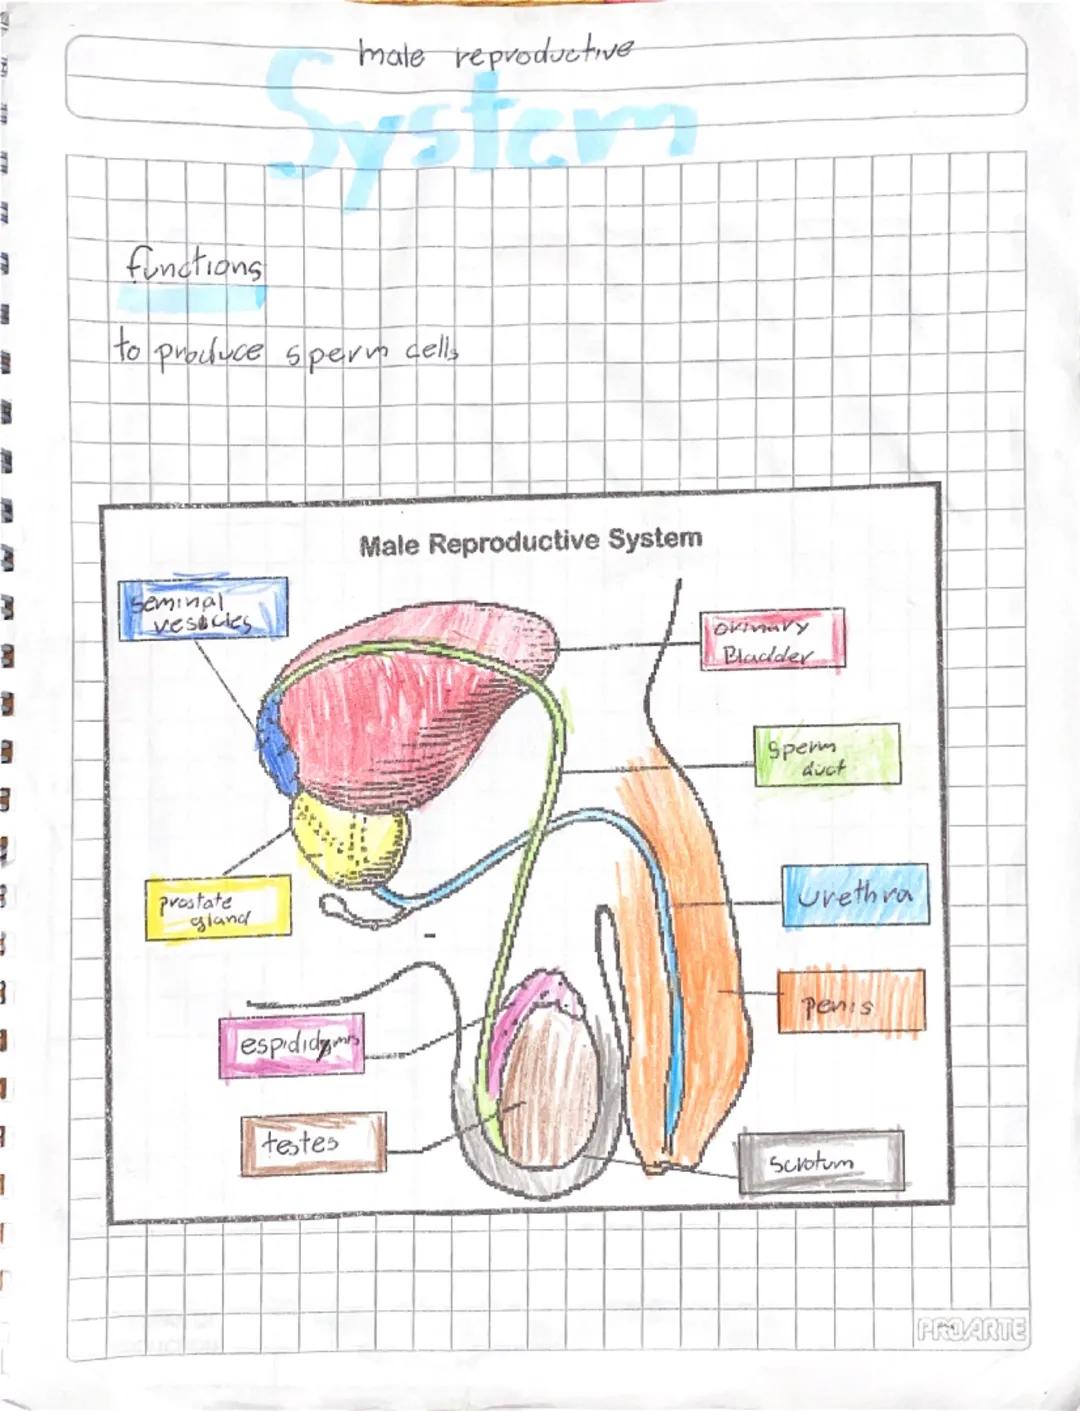 male reproductive
System
functions
to produce sperm cells
Male Reproductive System
seminal
vesicles
urinary
Bladder
Sperm
duct
prostate
gland
urethra
penis
espididymis
testes
scrotum
PROARTE